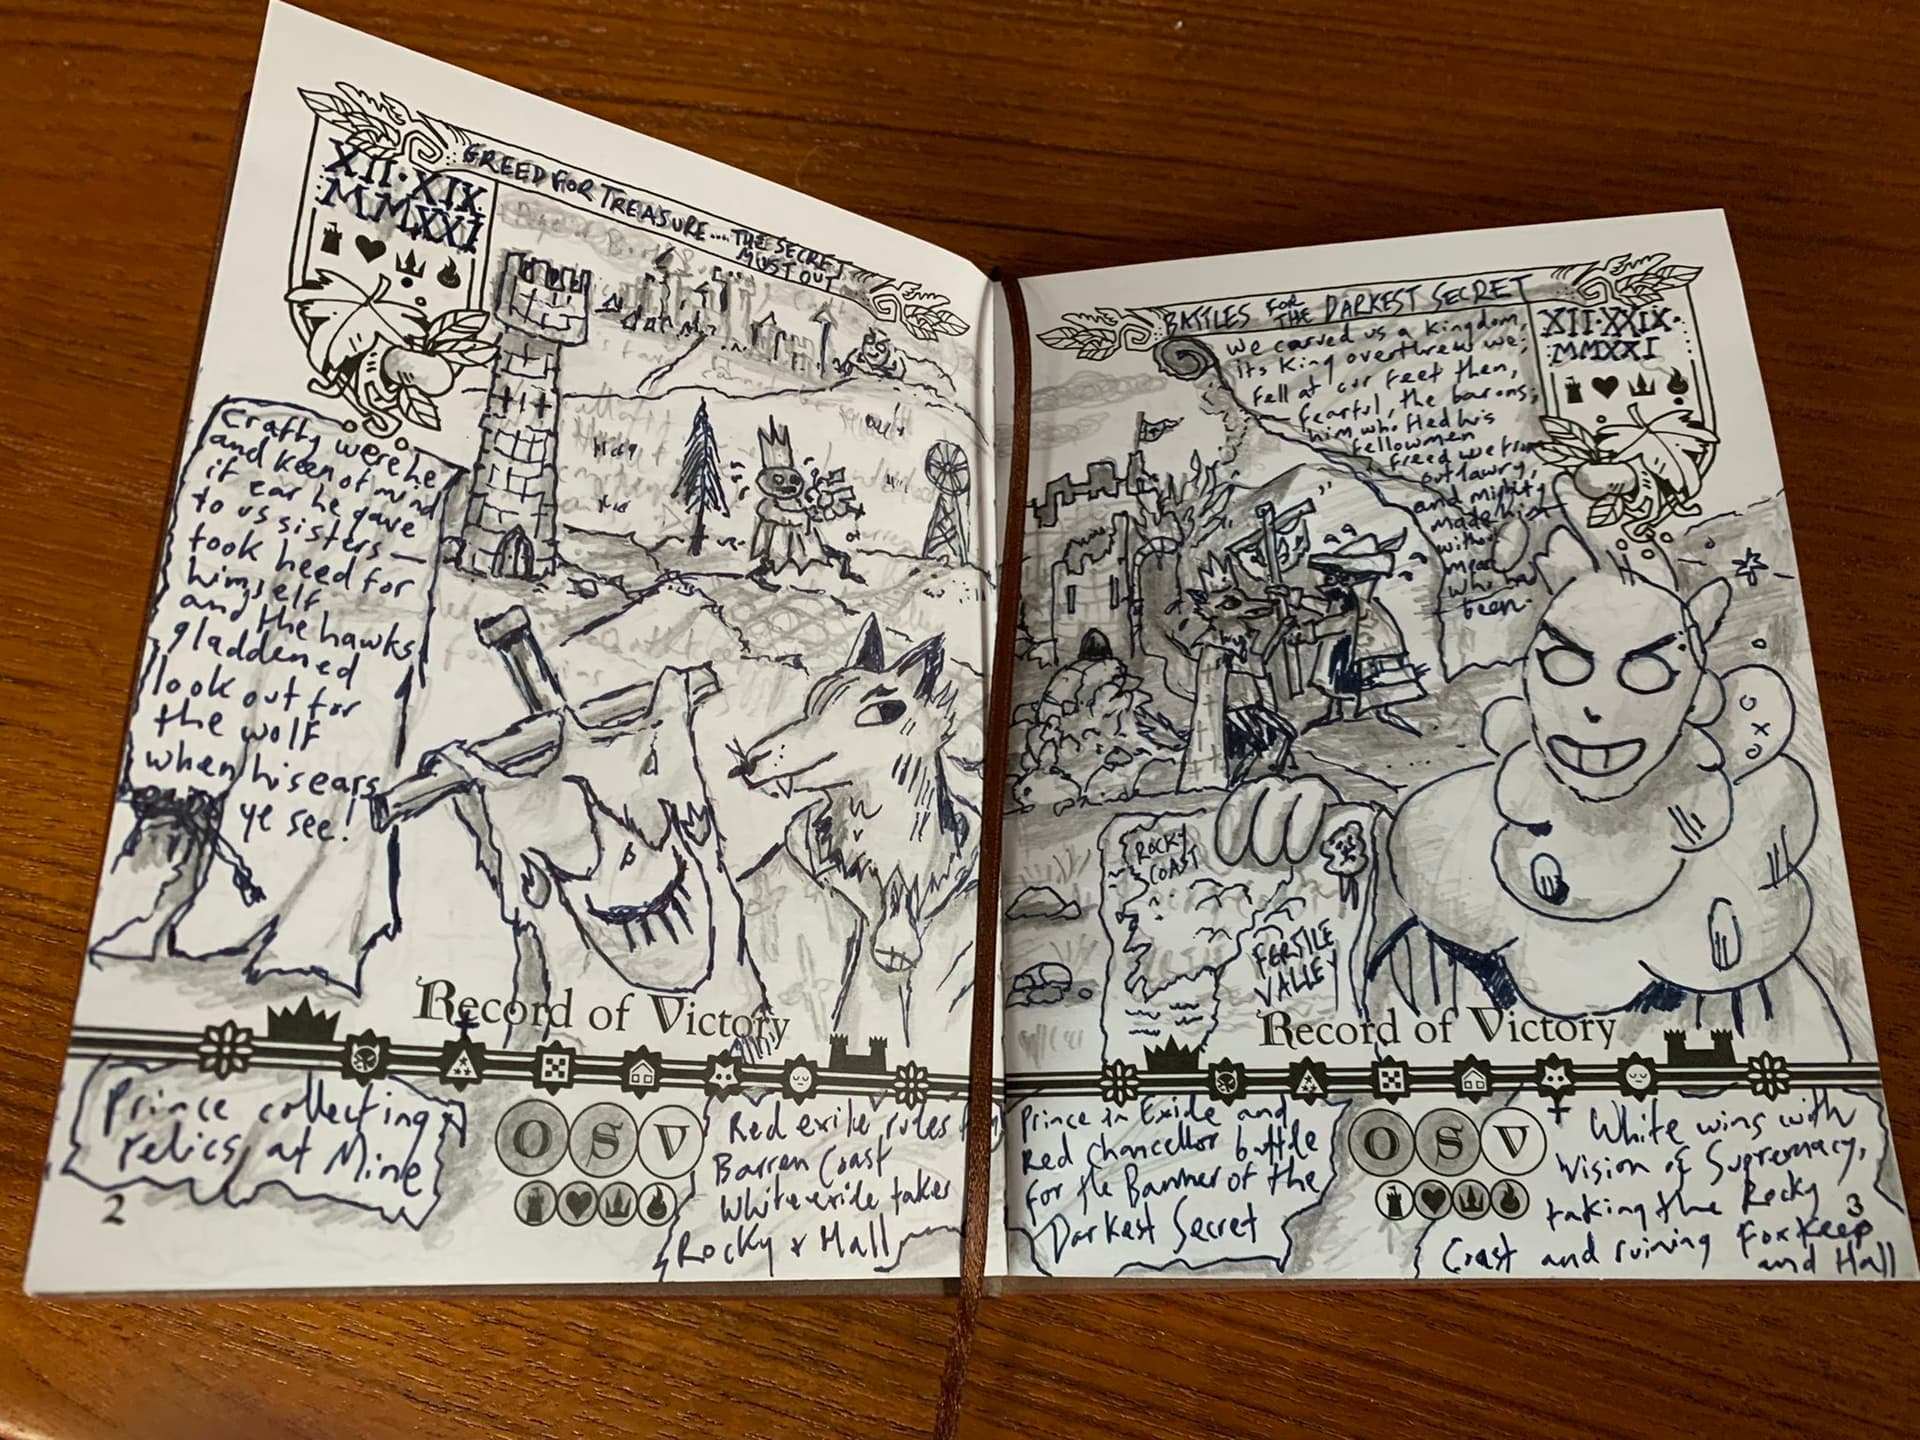 XII·XIX
MMXXI
GREED FOR TREASURE.... THE SECRET
MUST OUT
Crafty were he
and keen of mind
if ear he gave
to us sisters—
took heed for
himself
and the hawks
gladdened
look out for
the wolf
when his ears
ye see!
Record of Victory
Prince collecting
relics at Mine
2
O S V
Red exile rules
Barren Coast
White exile takes
Rocky & Hall
BATTLES FOR
THE DARKEST SECRET
XII·XXIX·
MMXXI
We carved us a kingdom,
its King overthrew we;
fell at our feet then,
fearful, the barons;
him who fled his
fellowmen
freed we from
outlawry,
and mighty
made
without
who had
been.
ROCKY
COAST
FERTILE
VALLEY
Record of Victory
Prince in Exide and
Red Chancellor battle
for the Banner of the
Darkest Secret
O S V
White wins with
Vision of Supremacy,
taking the Rocky
3
Coast and ruining Fox Keep
and Hall